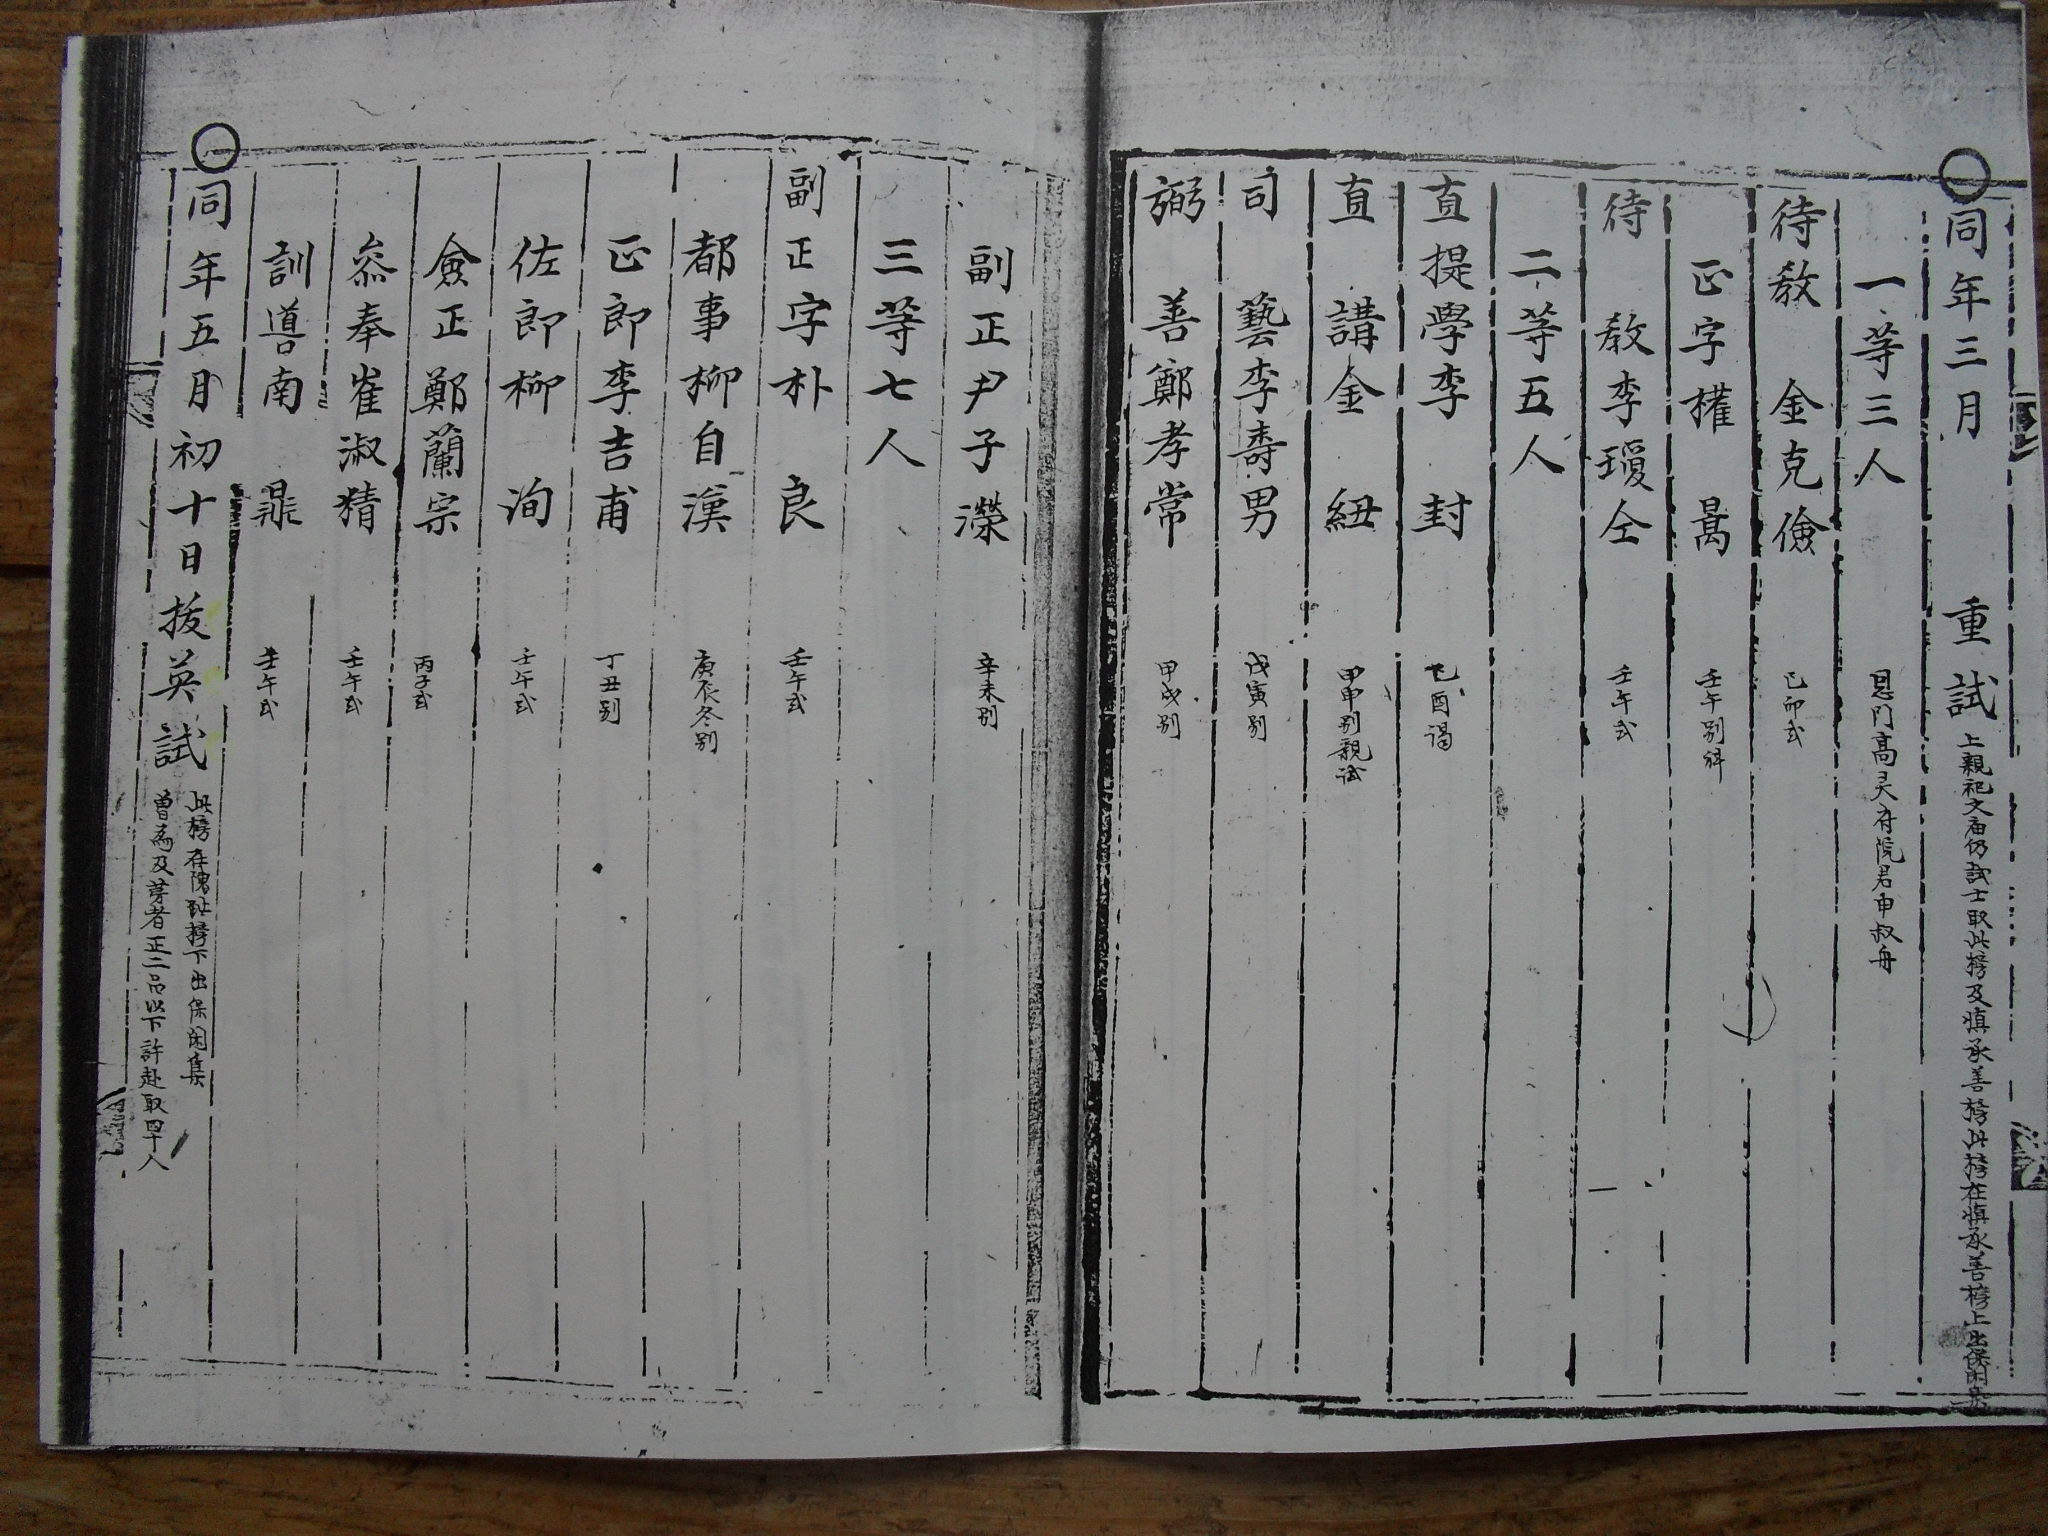 同年三月 重試 上親祀文庙仍試士取此榜及慎承善榜此榜在慎承善榜上出保閑集
一等三人 恩門高灵府院君申叔舟
待敎 金克儉 己卯式
正字權 晑 壬午別科
待 敎李瓊仝 壬午式
二等五人
直提學李 封 乙酉謁
直 講金 紐 甲申別親試
司 藝李壽男 戊寅別
弼 善鄭孝常 甲戌別
副正尹子濚 辛未別
三等七人
副正字朴 良 壬午式
都事柳自漢 庚辰冬別
正郎李吉甫 丁丑別
佐郎柳 洵 壬午式
僉正鄭蘭宗 丙子式
叅奉崔淑精 壬午式
訓導南 鼎 壬午式
同年五月初十日拔英試 此榜在陳趾榜下出保閑集
曾爲及茅者正二品以下許赴取四十人